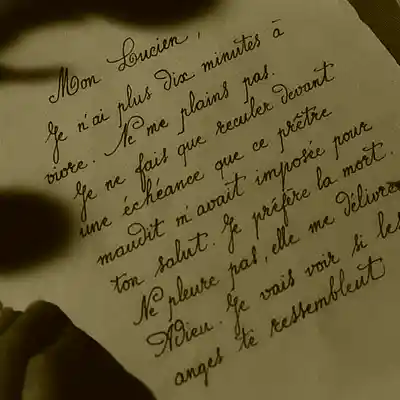 Mon Lucien,
Je n'ai plus dix minutes à
vivre. Ne me plains pas.
Je ne fais que reculer devant
une échéance que ce prêtre
maudit m'avait imposée pour
ton salut. Je préfère la mort.
Ne pleure pas, elle me délivre
Adieu. Je vais voir si les
anges te ressemblent